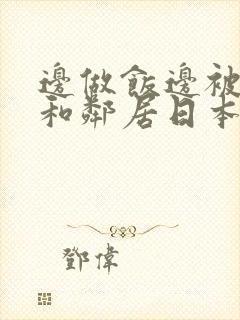 邊做飯邊被
和鄰居日本
鄧偉